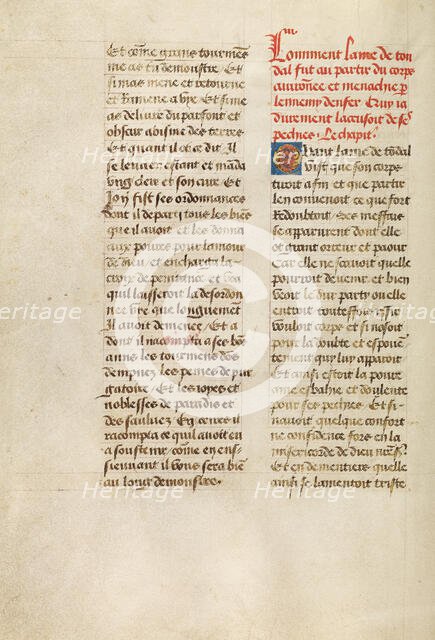 Et cõme grans tourmens
me as tu demonstre / Et
si mas mene et retourne
et ramene a bye / Et si me
as deliure du parfont et
obscur abisme des terres
Et quant il ot ce dit Il
se leua en estant et māda
vng clerc et son cure Et
Joy fist ses ordonnances
dont il departi tous les biēs
que il auoit et les donna
aux poures pour lamour
de dieu / et encharga la
croix de penitance et voa
quil laisseroit la desordon
nee vye que longuement
Il auoit demenee / Et a
dont il racompta a ses bōs
amis les tourmens dōns
dempuez les peines de pur
gatoire / Et les ioyes et
noblesses de paradis et
des saulucz Et comme il
racompta ce quil auoit eu
a soustenir come en en
sieuuant il vous sera biē
au long demonstre.
Comment lame de ton
dal fut au partir du corps
auironee et menachie p
lennemy denfer Et uy ia
durement laccusoit de ses
pechies. Le chapit.
Quant lame de tōdal
vist que son corps
tiroit a fin et que partir
len conuenoit ce que fort
Redoubtoit / Ses meffais
se apparurent dont elle
ot grant orreur et paour
Car elle ne scauoit quelle
pourroit deuenir et bien
veoit le dur party ou elle
entroit toutesfois
vouloit corps et si nosoit
pour la doubte et espouē
tement quy luy apparoit
Et ainsi estoit la poure
ame esbahie et doulente
pour ses pechies / Et si
nauoit quelque confort
ne confidence fors en la
misericorde de dieu nr̄e sr̄.
Et en dementiers quelle
ainsi se lamentoit triste
Heritage
Heritage
Heritage
Heritage
Heritage
Heritage